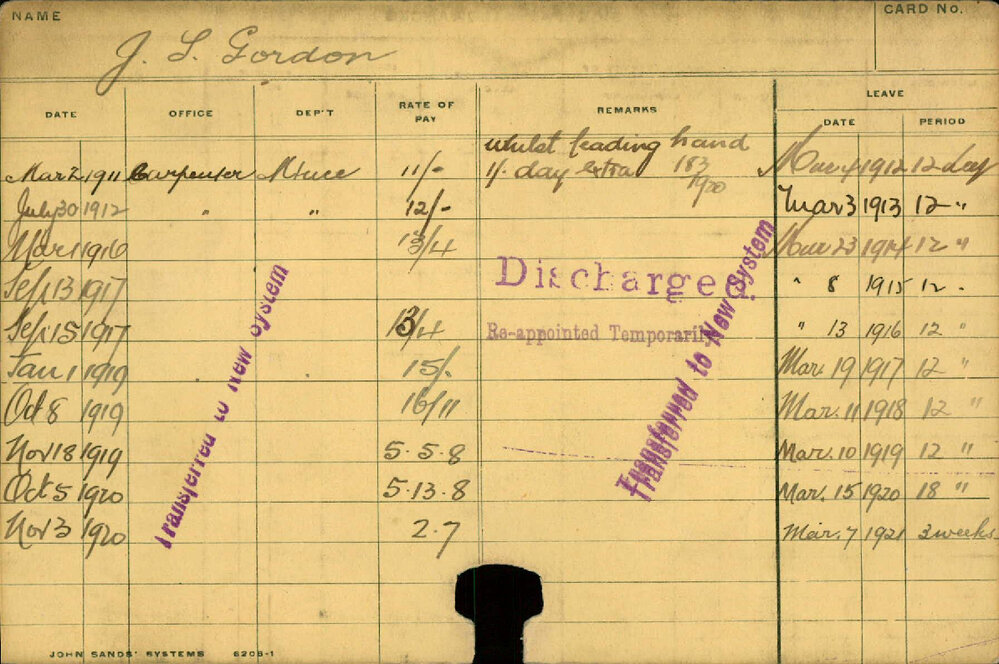 NAME
CARD No.
J. S. Gordon
DATE OFFICE DEP'T RATE OF PAY REMARKS LEAVE
DATE PERIOD
whilst leading hand
Mar 2 1911 Carpenter Mtnce 11/- 1/- day extra 183/1920 Mar 4 1912 12 day
July 30 1912 " " 12/- Mar 3 1913 12 "
Mar 1 1916 13/4 Mar 23 1914 12 "
Sep. 13 1917 Discharged. " 8 1915 12 "
Sep. 15 1917 13/4 Re-appointed Temporarily " 13 1916 12 "
Jan 1 1919 15/- Mar. 19 1917 12 "
Oct 8 1919 16/11 Mar. 11 1918 12 "
Nov 18 1919 5.5.8 Mar. 10 1919 12 "
Oct 5 1920 5.13.8 Mar. 15 1920 18 "
Nov 3 1920 2.7 Mar. 7 1921 3 weeks
Transferred to New System
Transferred to New System
JOHN SANDS' SYSTEMS 6208-1